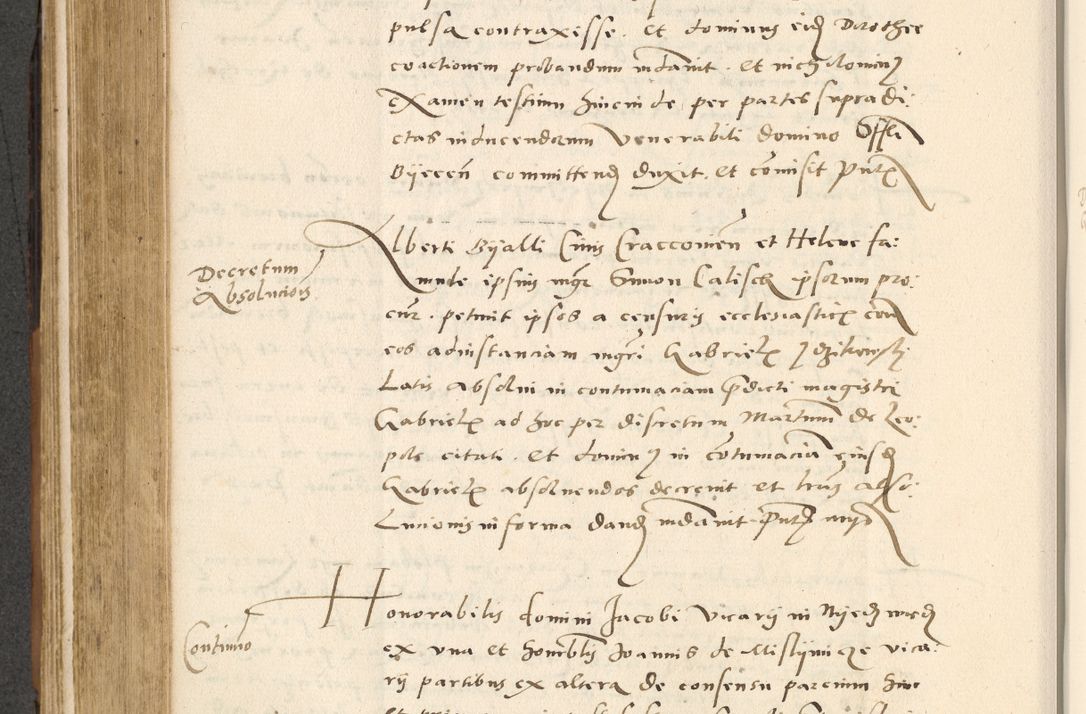 pulsa contraxisse. Et dominus eidem Dorothee
coactionem probandum mandavit. Et nichilominus
Examen testium hincinde per partes supradi:
ctas inducendorum Venerabili domino Offli
Byecen committend duxit. et comisit prntibus
Decretum
Absolucionis
Alberti Byalli Civis Cracovien et Helene fa:
mule ipsius mgr Simon Calisch ipsorum pro:
cur. petiit ipsos a censuris ecclesiasticis contra
eos adinstanciam mgri Gabrielis
Latis absolvi in contumaciam predicti magistri
Gabrielis ad hoc per discretum Martinum de Leo:
poli citati. Et dominus in cotumacia eiusdem
Gabrielis absolvendos decrevit et lras abso:
Lucionis in forma dand mandavit prntibus
Continuo
Honorabilis domini Jacobi Vicarii in
ex una et honorabilis Joannis de Mislymicze vica:
rii partibus ex altera de consensu parcium hinc